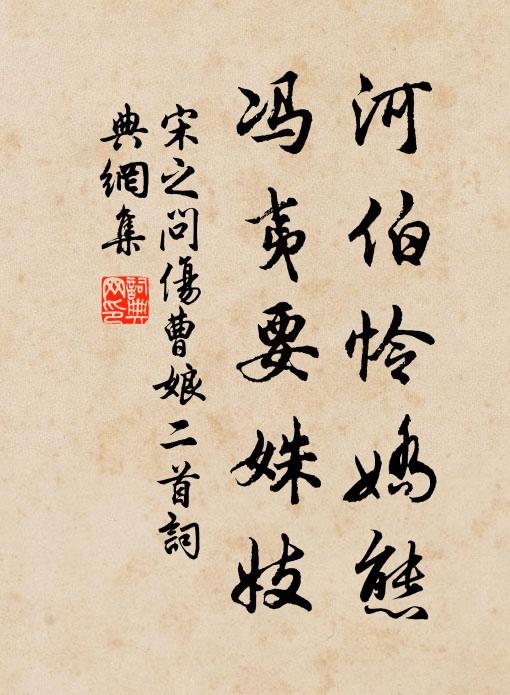 河伯怜嬌態
冯夷要姝妓
宋之问傷曹娘二首詞
典網集
詞典网印